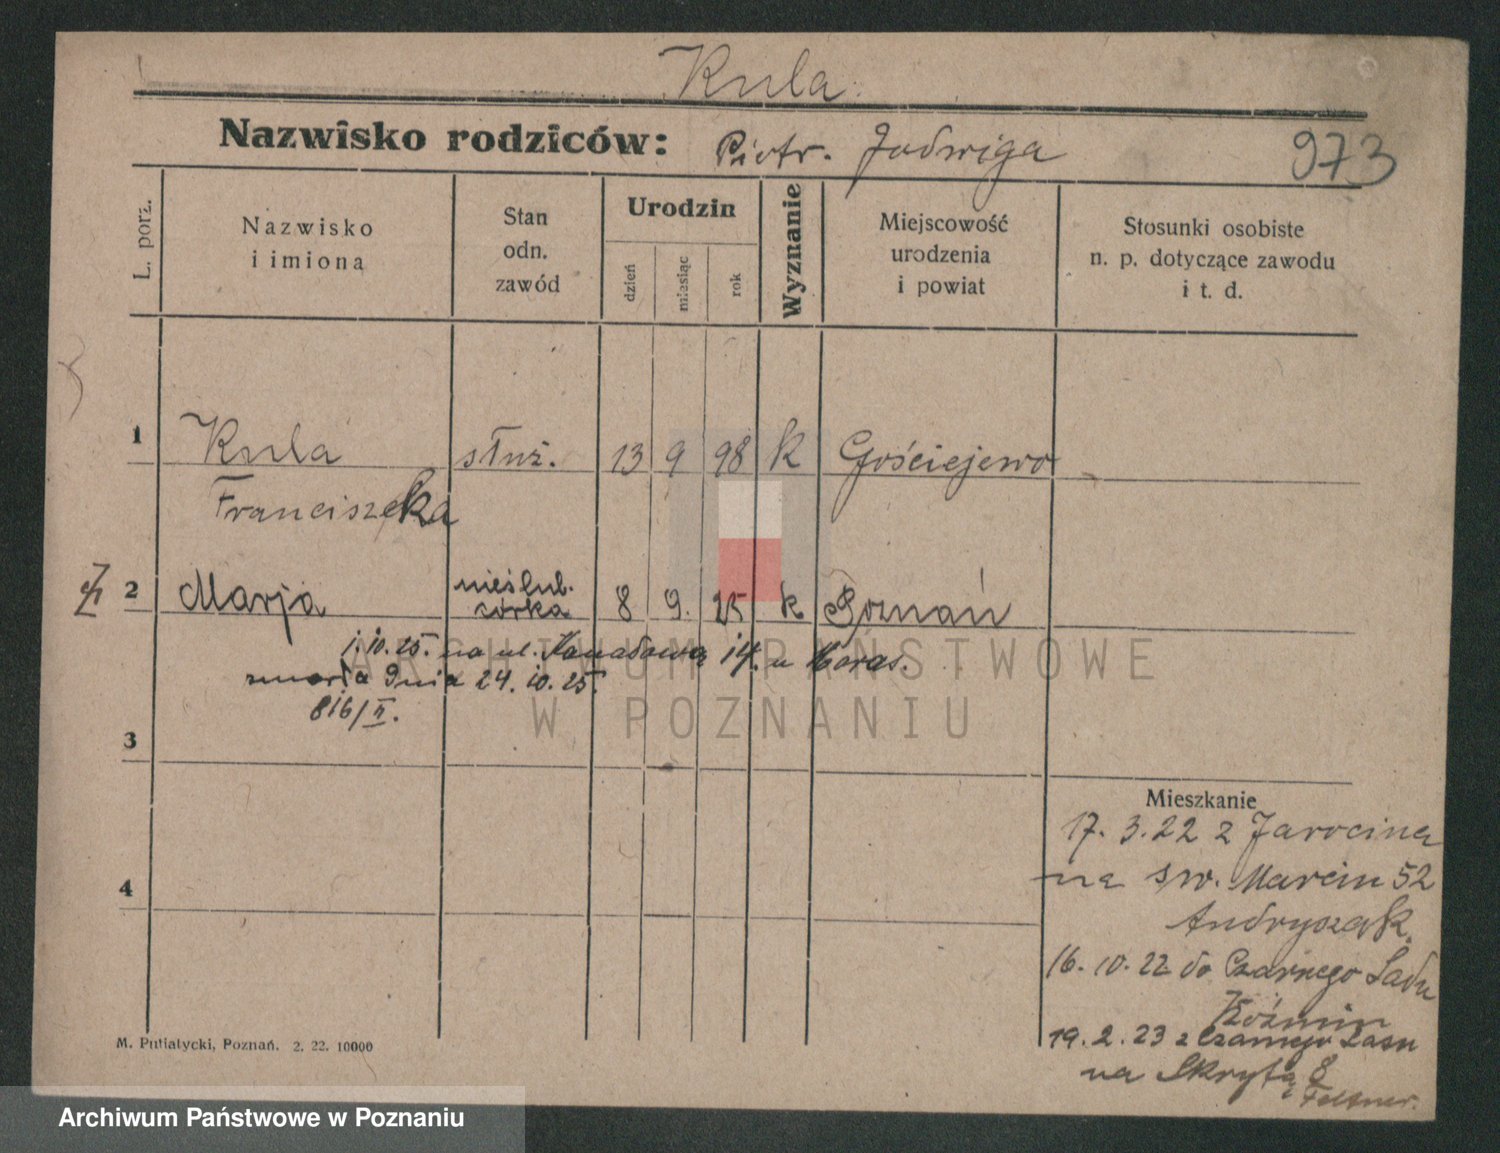 Kula
Nazwisko rodziców: Piotr. Jadwiga 973
L. porz.
Nazwisko
i imiona
Stan
odn.
zawód
Urodzin
dzień
miesiąc
rok
Wyznanie
Miejscowość
urodzenia
i powiat
Stosunki osobiste
n. p. dotyczące zawodu
i t. d.
1 Kula służ. 13 9 98 k Gościejewo
Franciszka
2 Marja nieślub. córka 8 9. 25 k Poznań
1.10.25. na ul. 14. u
zmarła dnia 24.10.25.
816/II.
3
ARCHIWUM PAŃSTWOWE
W POZNANIU
Mieszkanie
17. 3.22 z Jarocina
na św. Marcin 52
Andryszak.
4
16. 10. 22 do Czarnego Sadu
Koźmin
19. 2. 23 z Czarnego Sadu
na Skrytą 8
M. Putiatycki, Poznań. 2. 22. 10000
Archiwum Państwowe w Poznaniu